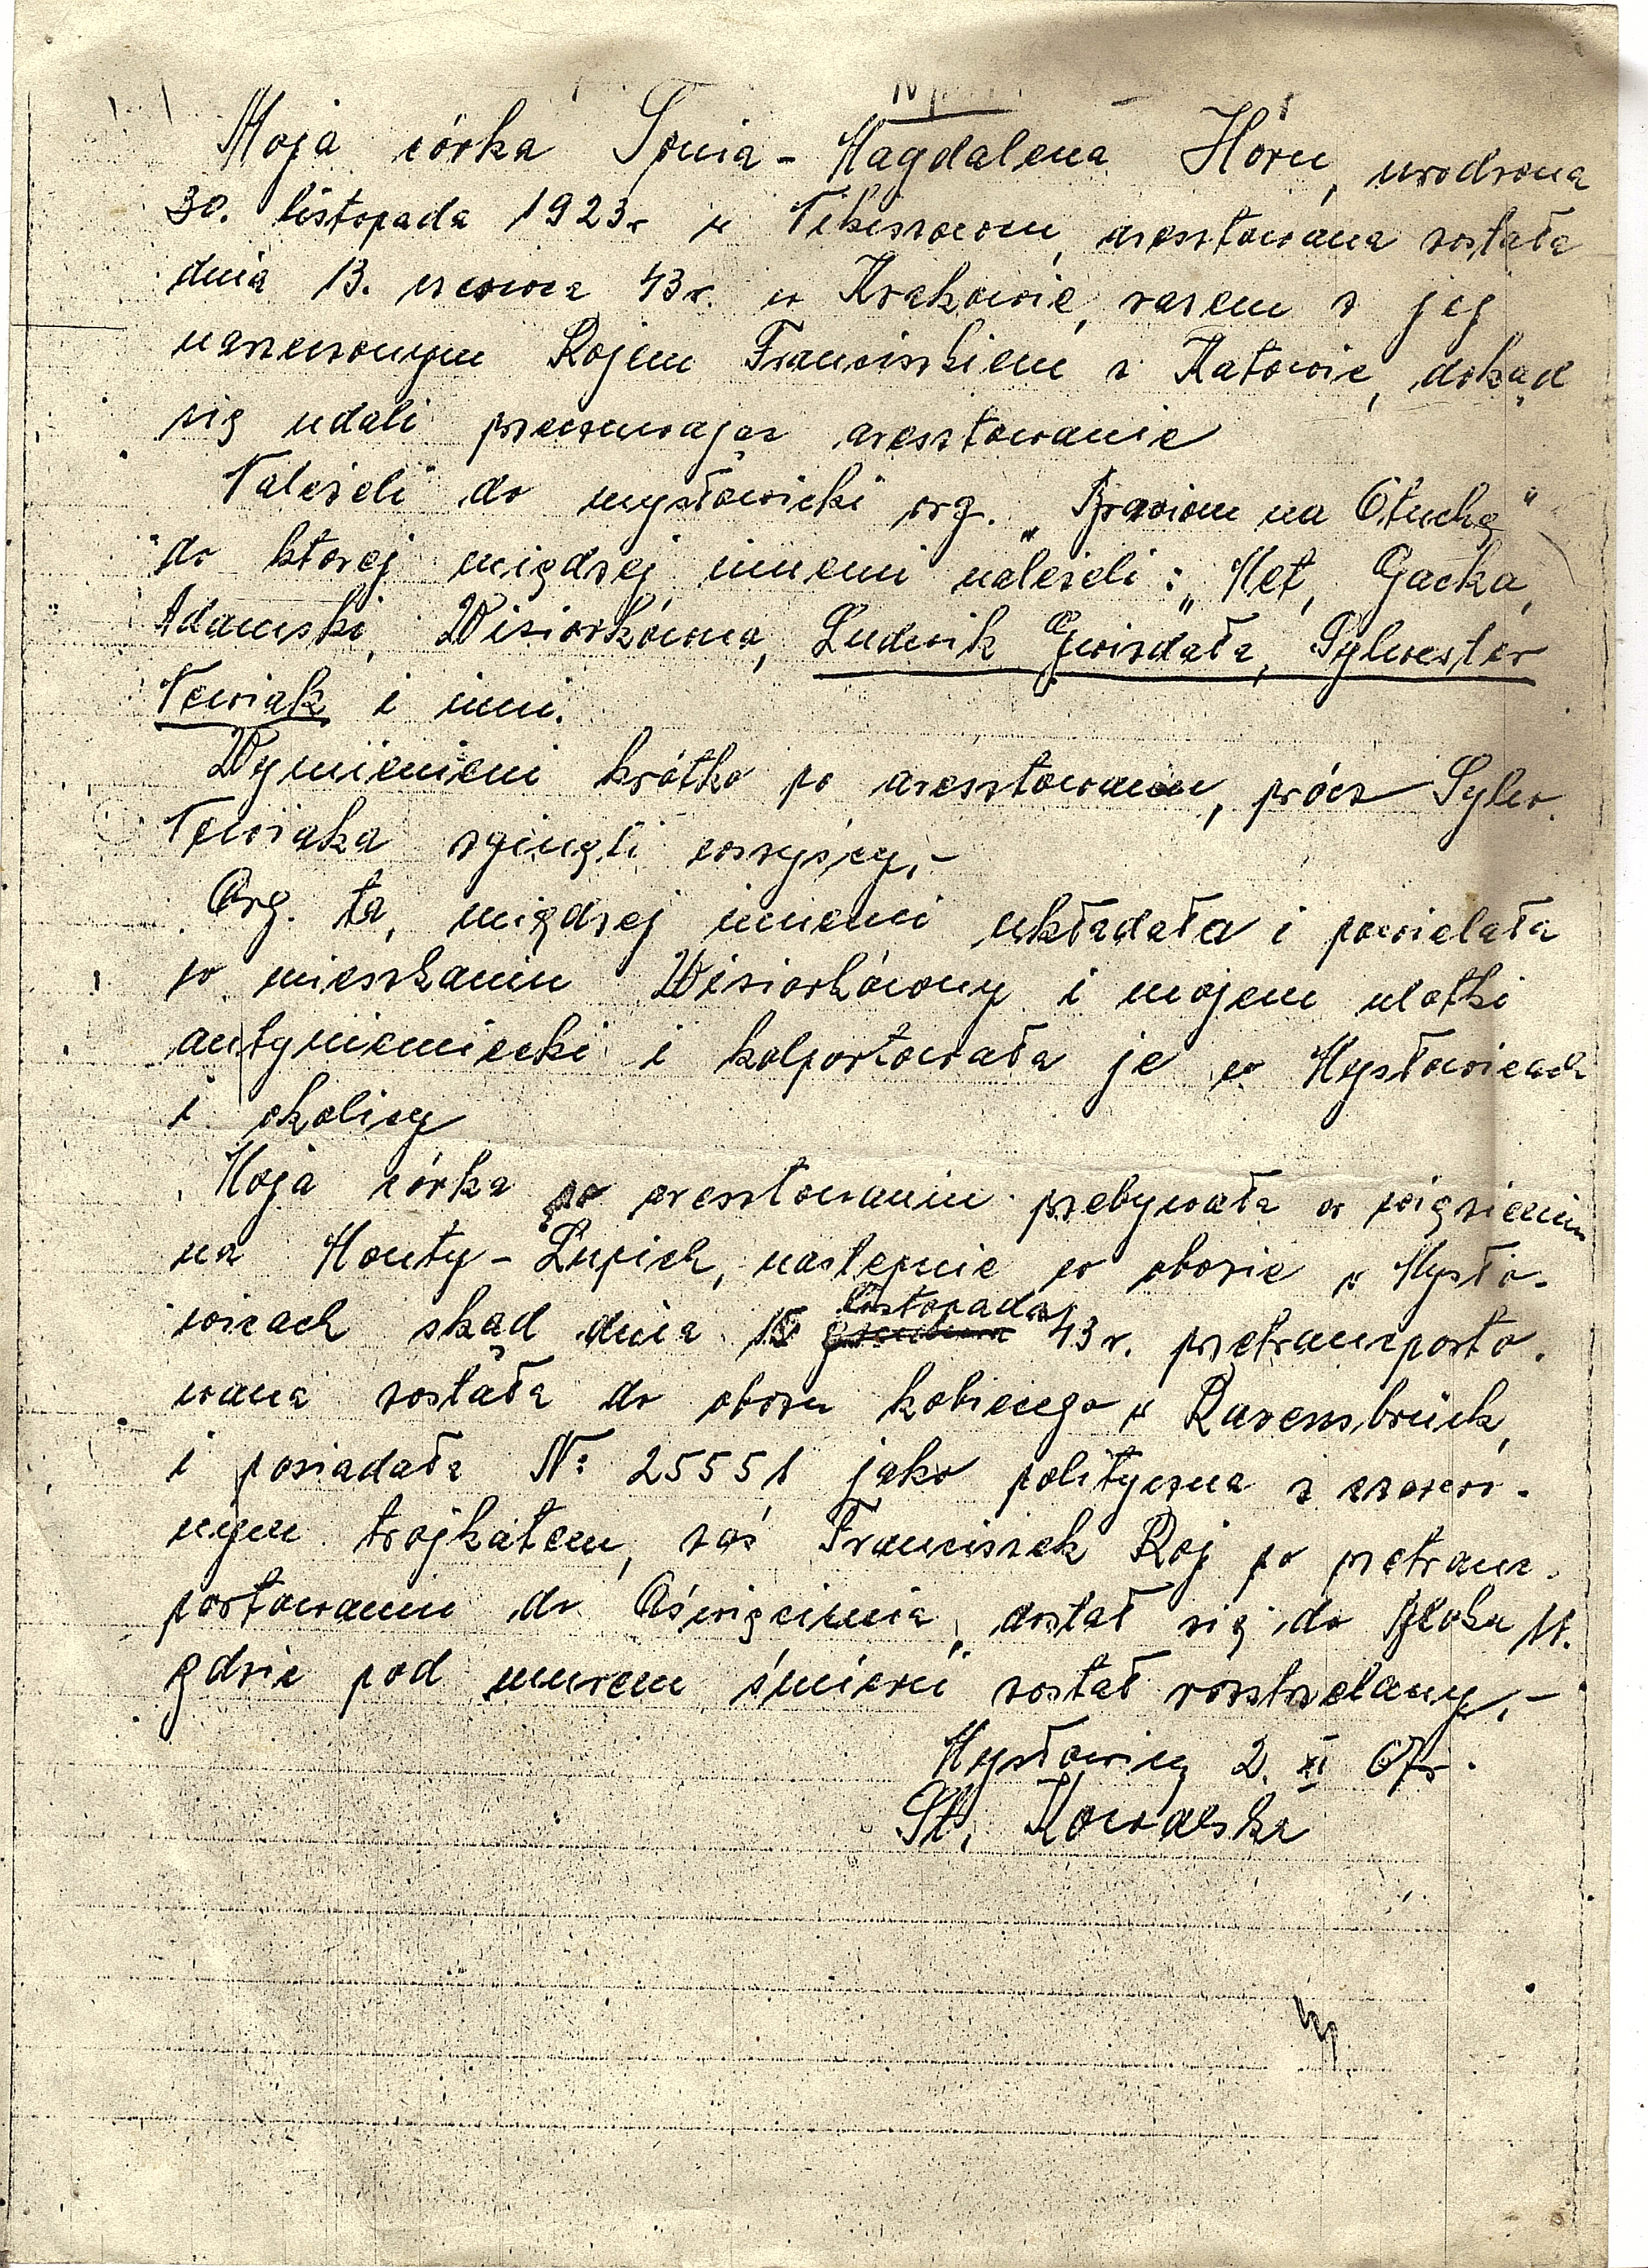 Moja córka Sonia - Magdalena Horn, urodzona
30. listopada 1923r w aresztowana została
dnia 13. czerwca 43r. w Krakowie, razem z jej
narzeczonym Rojem Franciszkiem z Katowic, dokąd
się udali przeczuwając aresztowanie
Należeli do mysłowicki org. „ na Otuchę"
do ktorej między innemi należeli: „Met, Gacka,
Adamski, Wisiorkówna, Ludwik Gwizdała, Sylwester
Newiak i inni.
Wymienieni krótko po aresztowaniu, prócz Sylw.
Newiaka zginęli wszyscy.-
Org. ta, między innemi układała i powielała
w mieszkaniu Wisiorkówny i mojem ulotki
antyniemiecki i kolportowała je w Mysłowicach
i okolicy
Moja córka po aresztowaniu przebywała w więzieniu
na Monty - Lupich, nastepnie w obozie w Mysło-
wicach skąd dnia 15 listopada 43r. przetransporto-
wana została do obozu kobiecego w Ravensbrück,
i posiadała Nr 25551 jako polityczna z czerwo-
nym trojkątem, zaś Franciszek Roj po przetrans-
portowaniu do Oświęcimia, dostał się do Bloku 11.
gdzie pod „murem śmierci" został rozstrzelany.-
Mysłowicy 2. XI 67r.
St. Kowalska